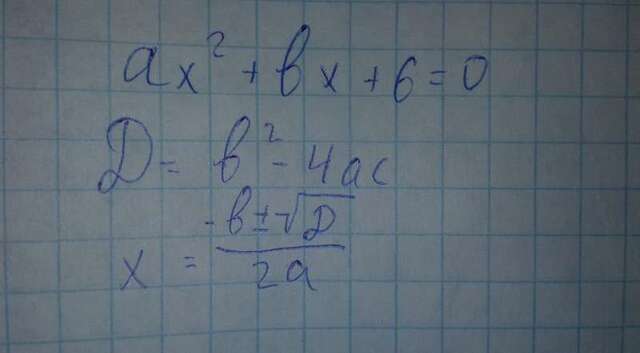 ax² + bx + 6 = 0
Д = b² - 4ac
x = -b ± √D / 2a